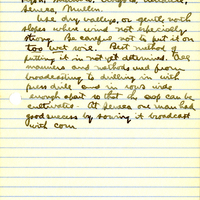 Seneca, Mullen.
Use dry valleys, or gentle north
slopes where wind not especially
strong. Be careful not to put it on
too wet soil. Best method of
putting it in not yet determined. All
manners and methods used from
broadcasting to drilling in with
press drill and in rows wide
enough apart so that the crop can be
cultivated. At Seneca one man had
good success by sowing it broadcast
with corn